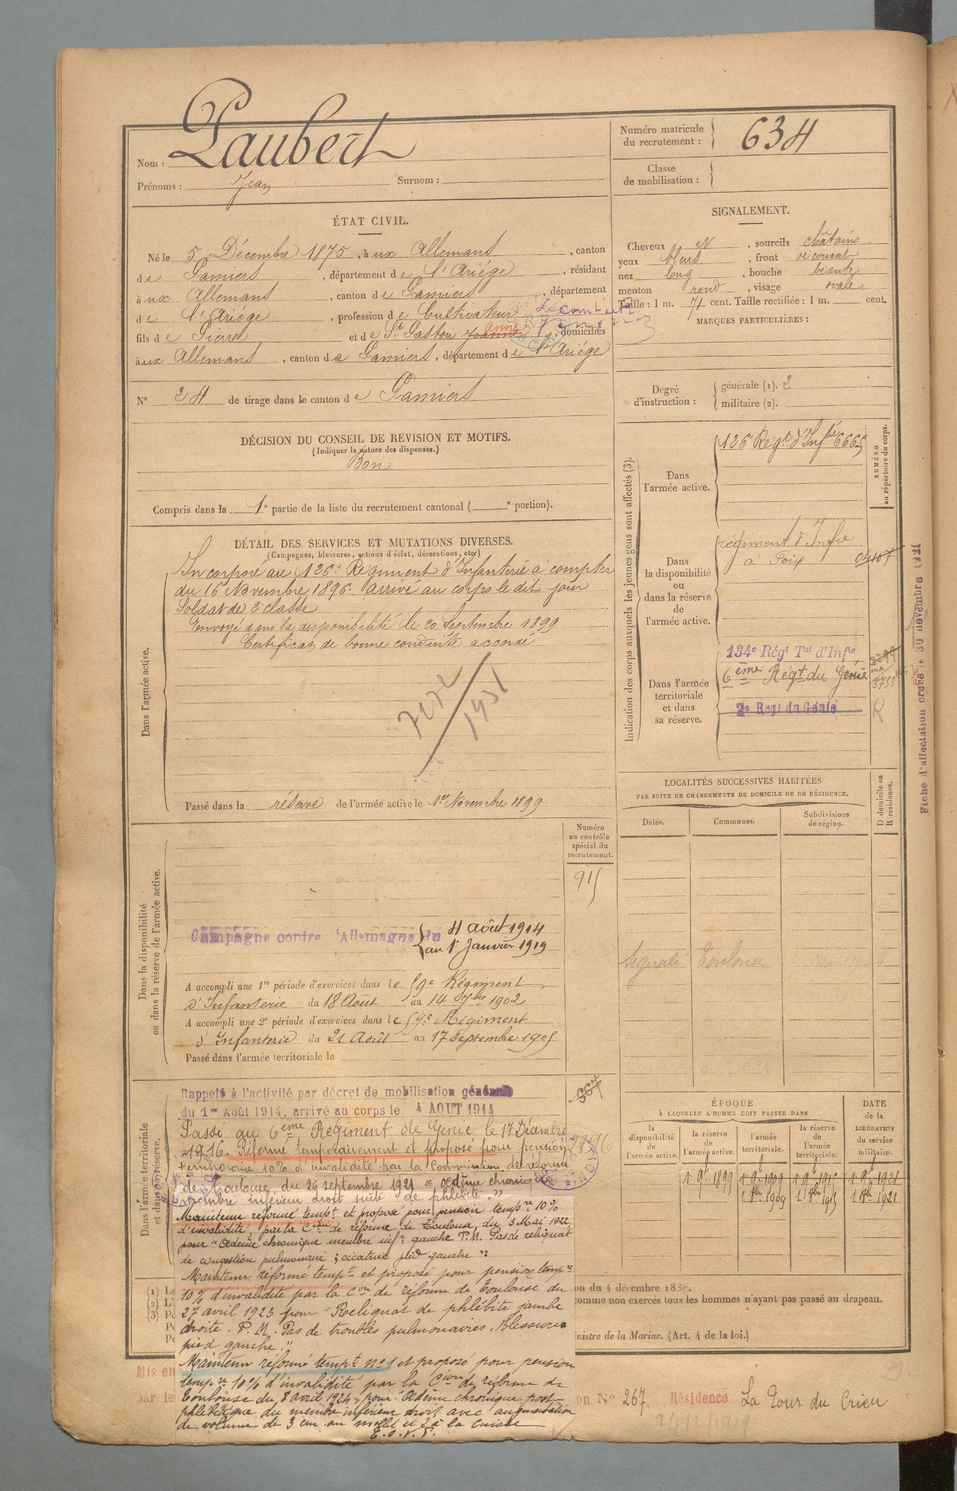 Nom : Laubert
Prénoms : Jean Surnom :
Numéro matricule du recrutement : 634
Classe de mobilisation :
ÉTAT CIVIL.
Né le 5 Décembre 1875, aux Allemans, canton
de Pamiers, département de l'Ariége, résidant
aux Allemans, canton de Pamiers, département
de l'Ariége, profession de Cultivateur
fils de Pierre et de St Gaston Jeanne Anne, domiciliés
aux Allemans, canton de Pamiers, département de l'Ariége
N° 24 de tirage dans le canton de Pamiers
SIGNALEMENT.
Cheveux et, sourcils châtains
yeux bleus, front
nez long, bouche
menton rond, visage ovale
Taille : 1 m. 71 cent. Taille rectifiée : 1 m. cent.
MARQUES PARTICULIÈRES :
Degré d'instruction : générale (1). 2
militaire (2).
DÉCISION DU CONSEIL DE REVISION ET MOTIFS.
(Indiquer la nature des dispenses.)
Bon
Compris dans la 1e partie de la liste du recrutement cantonal ( e portion).
DÉTAIL DES SERVICES ET MUTATIONS DIVERSES.
(Campagnes, blessures, actions d'éclat, décorations, etc.)
Dans l'armée active.
Incorporé au 126e Régiment d'Infanterie à compter
du 16 Novembre 1896. arrivé au corps le dit jour
Soldat de 2e classe
Envoyé dans la disponibilité le 20 Septembre 1899
Certificat de bonne conduite accordé
1931
Passé dans la réserve de l'armée active le 1er Novembre 1899
Indication des corps auxquels les jeunes gens sont affectés (3).
NUMÉRO au répertoire du corps.
Dans l'armée active.
126e Régt d'Infie 6665
Dans la disponibilité ou dans la réserve de l'armée active.
régiment d'Infie
à Foix
Dans l'armée territoriale et dans sa réserve.
134e Régt Tal d'Infie
6ème Régt du Génie
2e Regt du Génie
R
Fiche d'affectation créée le 30 novembre
LOCALITÉS SUCCESSIVES HABITÉES
PAR SUITE DE CHANGEMENTS DE DOMICILE OU DE RÉSIDENCE.
Dates. Communes. Subdivisions de région. D domicile ou R résidence.
Signalé Toulouse
Dans la disponibilité ou dans la réserve de l'armée active.
Numéro au contrôle spécial du recrutement.
915
Campagne contre l'Allemagne du 4 août 1914
au 1er Janvier 1919
A accompli une 1re période d'exercices dans le 59e Régiment
d'Infanterie du 18 Août au 14 7bre 1902
A accompli une 2e période d'exercices dans le 59e Régiment
d'Infanterie du 21 Août au 17 Septembre 1905
Passé dans l'armée territoriale le
Dans l'armée territoriale et dans sa réserve.
Rappelé à l'activité par décret de mobilisation générale
du 1er Août 1914, arrivé au corps le 4 AOUT 1914
Passé au 6ème Régiment de Génie le 17 Décembre
1916. Réformé temporairement et proposé pour pension
temporaire 10% d'invalidité par la Commission de réforme
de Toulouse, du 26 septembre 1921 "œdème chronique
membre inférieur droit suite de phlébite."
Maintenu réformé tempt et proposé pour pension tempre 10%
d'invalidité, par la Cion de réforme de Toulouse, du 3 Mai 1922
pour "œdème chronique membre infr gauche P.M. Pas de reliquat
de congestion pulmonaire ; cicatrice pied gauche"
Maintenu réformé tempt et proposé pour pension tempre
10% d'invalidité par la Con de réforme de Toulouse du
27 avril 1923 pour "Reliquat de phlébite jambe
droite. P.M. Pas de troubles pulmonaires. Blessure
pied gauche."
Maintenu réformé tempt n°1 et proposé pour pension
tempre 10% d'invalidité par la Cion de réforme de
Toulouse du 8 avril 1924, pour "Œdème chronique post-
phlébitique du membre inférieur droit avec augmentation
de volume de 3 cm au mollet et 2 à la cuisse
ÉPOQUE
À LAQUELLE L'HOMME DOIT PASSER DANS
la disponibilité de l'armée active. la réserve de l'armée active. l'armée territoriale. la réserve de l'armée territoriale.
DATE de la LIBÉRATION du service militaire.
1 9 1899 1 9 1909 1 9 1915 1 9 1921
1 8bre 1909 1 8bre 1915 1 8bre 1921
on du 4 décembre 188
comme non exercés tous les hommes n'ayant pas passé au drapeau.
inistre de la Marine. (Art. 4 de la loi.)
Mis en
par le
on N° 267. Résidence La Tour du Crieu